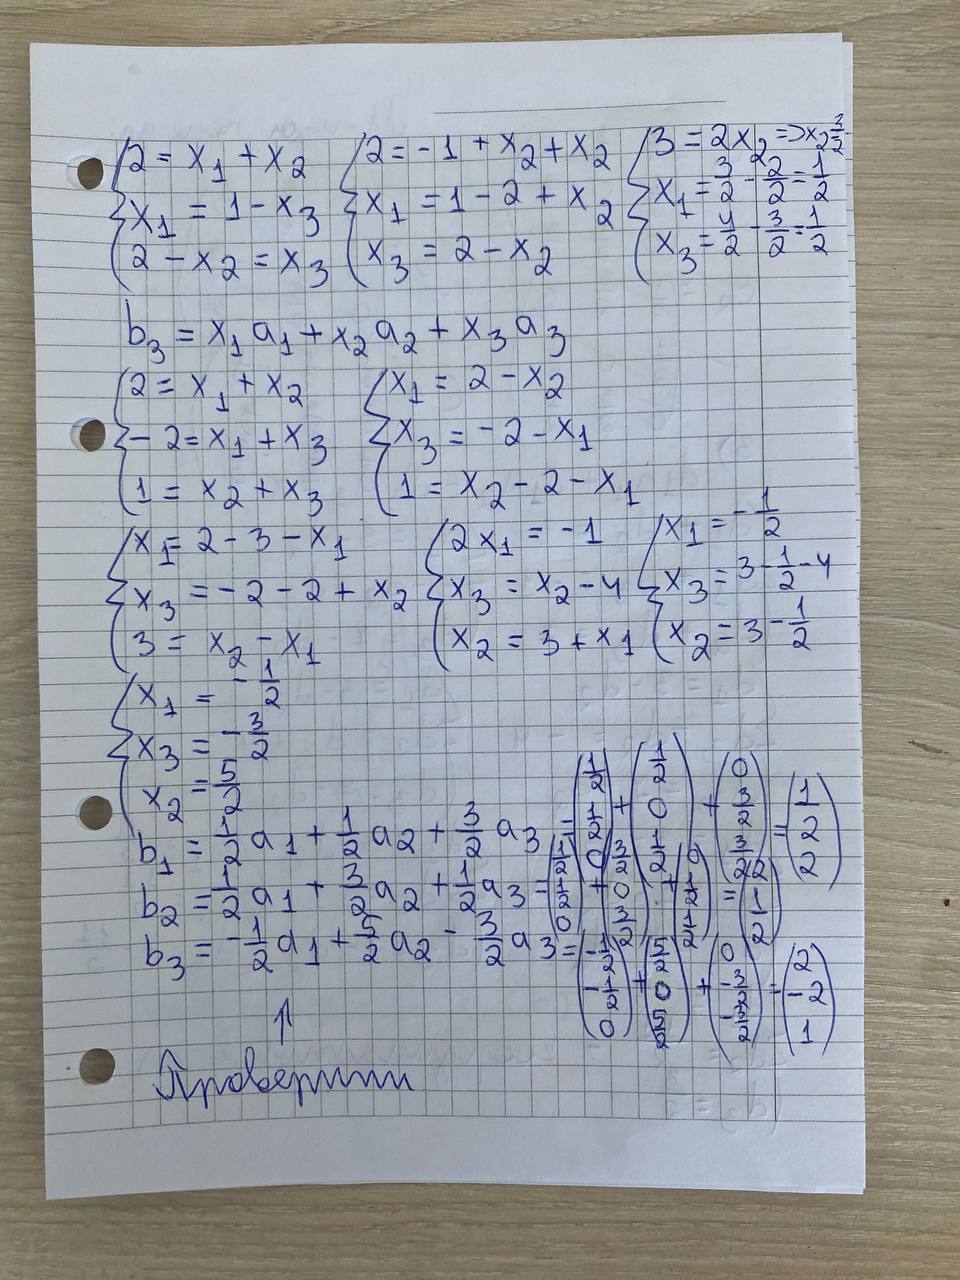 {2 = x₁ + x₂ {2 = -1 + x₂ + x₂ {3 = 2x₂ => x₂ = 3/2
x₁ = 1 - x₃ x₁ = 1 - 2 + x₂ x₁ = 3/2 - 2/2 = 1/2
2 - x₂ = x₃ x₃ = 2 - x₂ x₃ = 4/2 - 3/2 = 1/2
b₃ = x₁a₁ + x₂a₂ + x₃a₃
{2 = x₁ + x₂ {x₁ = 2 - x₂
-2 = x₁ + x₃ x₃ = -2 - x₁
1 = x₂ + x₃ 1 = x₂ - 2 - x₁
{x₁ = 2 - 3 - x₁ {2x₁ = -1 {x₁ = -1/2
x₃ = -2 - 2 + x₂ x₃ = x₂ - 4 x₃ = 3 - 1/2 - 4
3 = x₂ - x₁ x₂ = 3 + x₁ x₂ = 3 - 1/2
{x₁ = -1/2
x₃ = -3/2
x₂ = 5/2
b₁ = 1/2 a₁ + 1/2 a₂ + 3/2 a₃ = (1/2 1/2 0) + (1/2 0 1/2) + (0 3/2 3/2) = (1 2 2)
b₂ = 1/2 a₁ + 3/2 a₂ + 1/2 a₃ = (1/2 1/2 0) + (3/2 0 3/2) + (0 1/2 1/2) = (2 1 2)
b₃ = -1/2 a₁ + 5/2 a₂ - 3/2 a₃ = (-1/2 -1/2 0) + (5/2 0 5/2) + (0 -3/2 -3/2) = (2 -2 1)
↑
Проверили